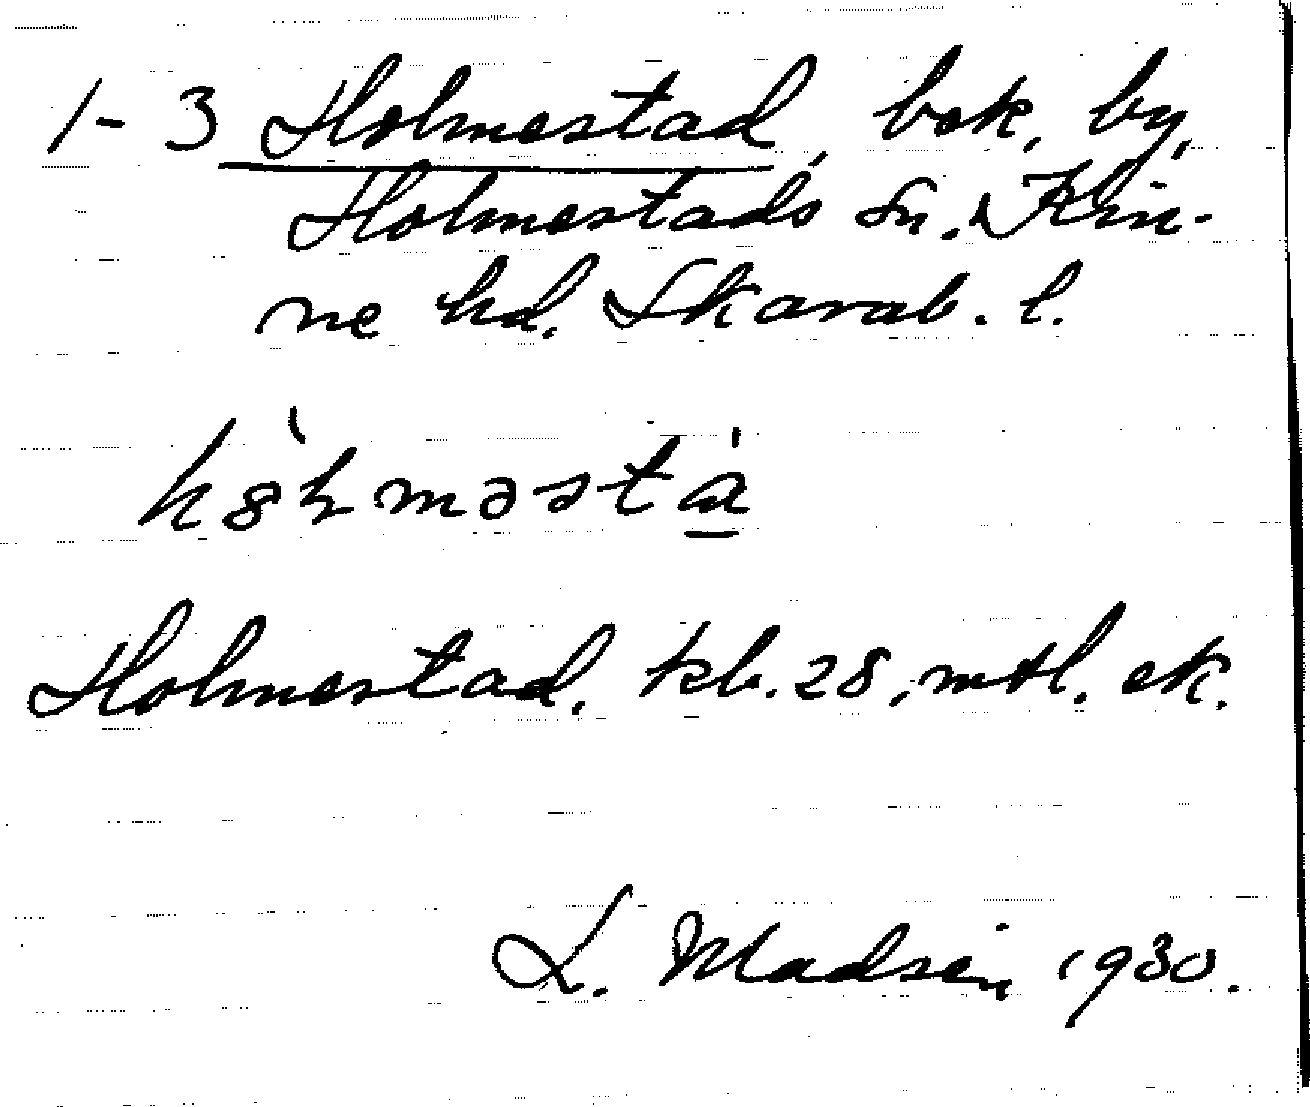 1-3 Holmestad, bok, by,
Holmestads sn. Kin-
ne hd. Skarab. l.
Holmestad. kb. 28, mtl. ek.
L. Madsén 1930.